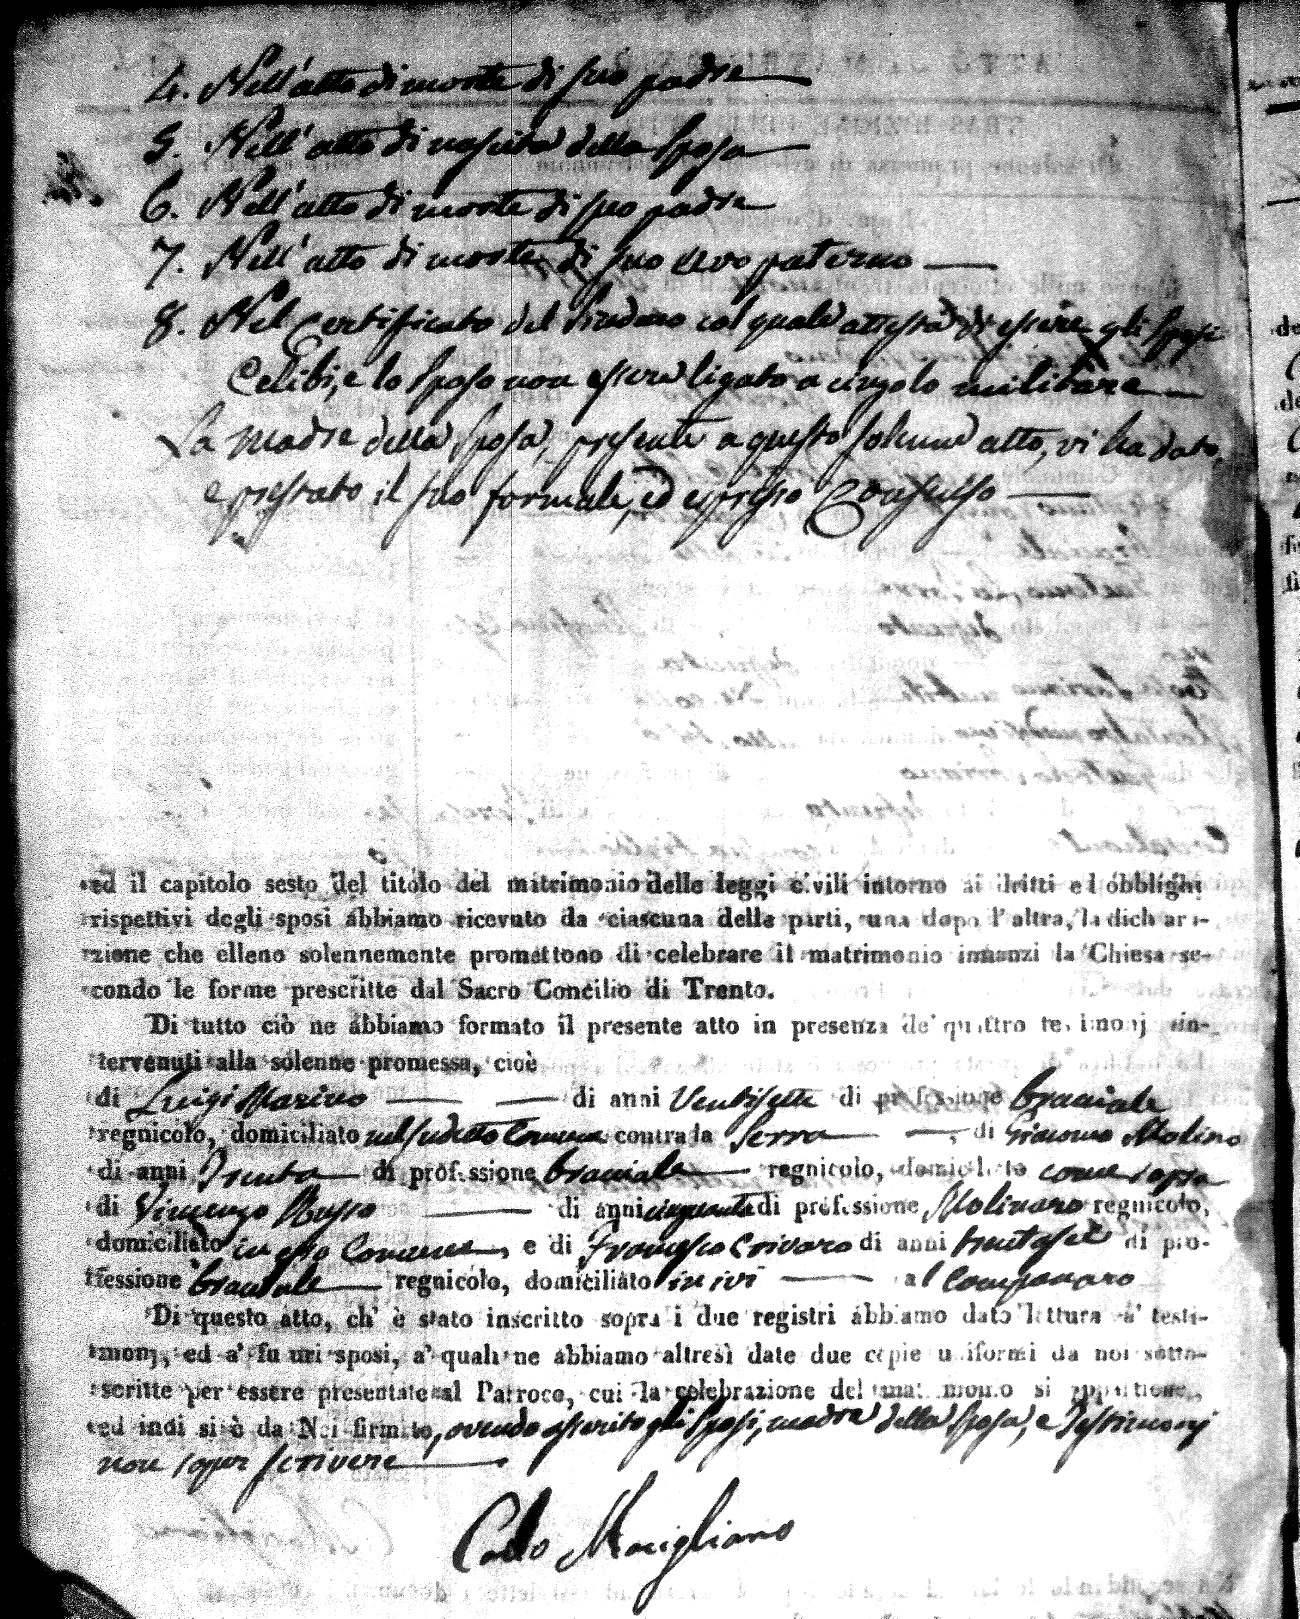 4. Nell'atto di morte di suo padre
5. Nell'atto di nascita della Sposa
6. Nell'atto di morte di suo padre
7. Nell'atto di morte di suo avo paterno
8. Nel Certificato del Sindaco col quale attesta di essere gli Sposi
Celibi, e lo Sposo non essere ligato a cingolo militare
La Madre della Sposa, presente a questo solenne atto, vi ha dato,
e prestato il suo formale, ed espresso Consenso
ed il capitolo sesto del titolo del matrimonio delle leggi civili intorno ai dritti e l'obblighi
rispettivi degli sposi abbiamo ricevuto da ciascuna delle parti, una dopo l'altra, la dichiara-
zione che elleno solennemente promettono di celebrare il matrimonio innanzi la Chiesa se-
condo le forme prescritte dal Sacro Concilio di Trento.
Di tutto ciò ne abbiamo formato il presente atto in presenza de' quattro testimonj in-
tervenuti alla solenne promessa, cioè
di Luigi Marino di anni Ventisette di professione bracciale
regnicolo, domiciliato nel sudetto Comune contrada Serra, di Giacomo Molino
di anni Trenta di professione bracciale regnicolo, domiciliato come sopra
di Vincenzo Russo di anni cinquanta di professione Molinaro regnicolo,
domiciliato in esso Comune, e di Francesco Crivaro di anni trentasei di pro-
fessione bracciale regnicolo, domiciliato in ivi al Campanaro
Di questo atto, ch' è stato inscritto sopra i due registri abbiamo dato lettura a' testi-
monj, ed a' futuri sposi, a' quali ne abbiamo altresì date due copie uniformi da noi sotto-
scritte per essere presentate al Parroco, cui la celebrazione del matrimonio si appartiene,
ed indi si è da Noi firmato, avendo asserito gli Sposi, madre della Sposa, e Testimonj
non saper scrivere
Carlo Marigliano